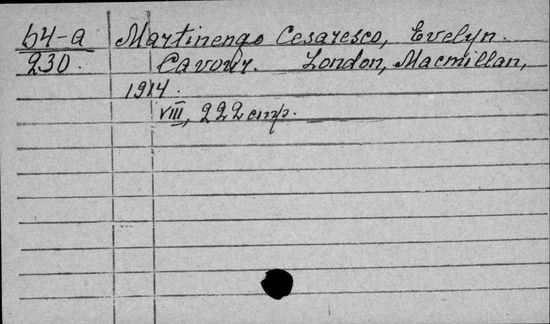 64-a Martinengo Cesaresco, Evelyn.
230. Cavour. London, Macmillan,
1914.
VIII, 222 стр.